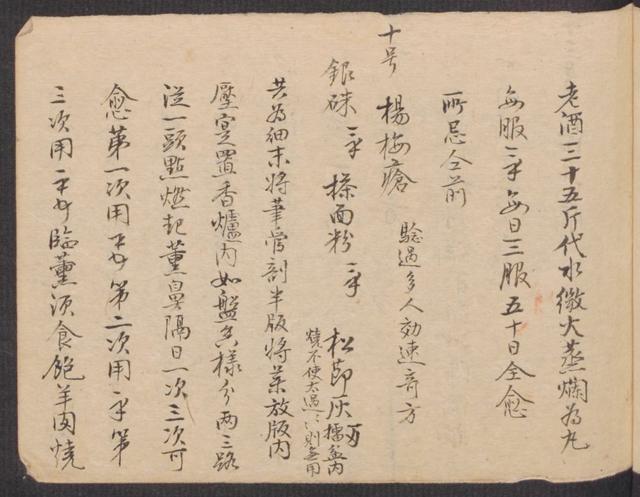 老酒三十五斤代水微火蒸爛為丸
每服二千每日三服五十日全愈
所忌仝前
十号 楊梅瘡 驗過多人効速奇方
銀硃 搽面粉 松節灰 擂盆內
燒不使太過太過則無用
共為細末將筆管剖半版將藥放版內
壓寔置香爐內如盤香樣分兩三路
從一頭點燃起薰鼻隔日一次三次可
愈第一次用 第二次用 第
三次用 臨薰須食飽羊肉燒